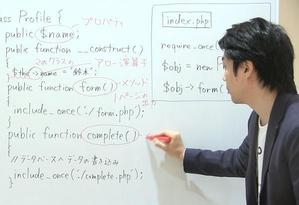 ass Profile {
プロパティ
public $name;
public function __construct()
2のクラスの アロー演算子
$this->name = "鈴木";
public function form()
メソッド
{
ページの出力
include_once('./form.php');
}
public function complete()
{
//データベースへデータの書き込み
include_once('./complete.php');
}
index.php
require_once
$obj = new
$obj->form(